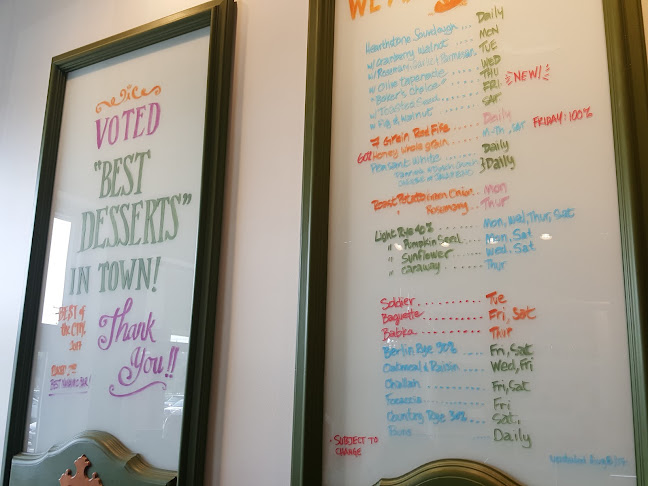 VOTED
"BEST
DESSERTS"
IN TOWN!
Thank
You!!
BEST of
the CITY
WE
Hearthstone Sourdough .... Daily
w/ Cranberry Walnut .... MON
w/ Rosemary, Garlic & Parmesan TUE
w/ Olive Tapenade .... WED
"Baker's Choice" .... THU
w/ Toasted Seed .... FRI NEW!
w/ Fig & Walnut .... SAT
7 Grain Red Fife ..... Daily
60% Honey Whole grain ..... M-Th, Sat FRIDAY: 100%
Peasant White ...... Daily
} Daily
Roast Potato Onion ..... Mon
" Rosemary ..... Thur
Light Rye 40% ..... Mon, Wed, Thur, Sat
" Pumpkin Seed .... Mon, Sat
" Sunflower ....... Wed, Sat
" Caraway ....... Thur
Soldier ............ Tue
Baguette ........... Fri, Sat
Babka ............ Thur
Berlin Rye 90% ...... Fri, Sat
Oatmeal & Raisin ...... Wed, Fri
Challah ......... Fri, Sat
Focaccia ......... Fri
Country Rye 30% .... Sat.
Buns ........ Daily
• SUBJECT TO
CHANGE
updated Aug 8/17